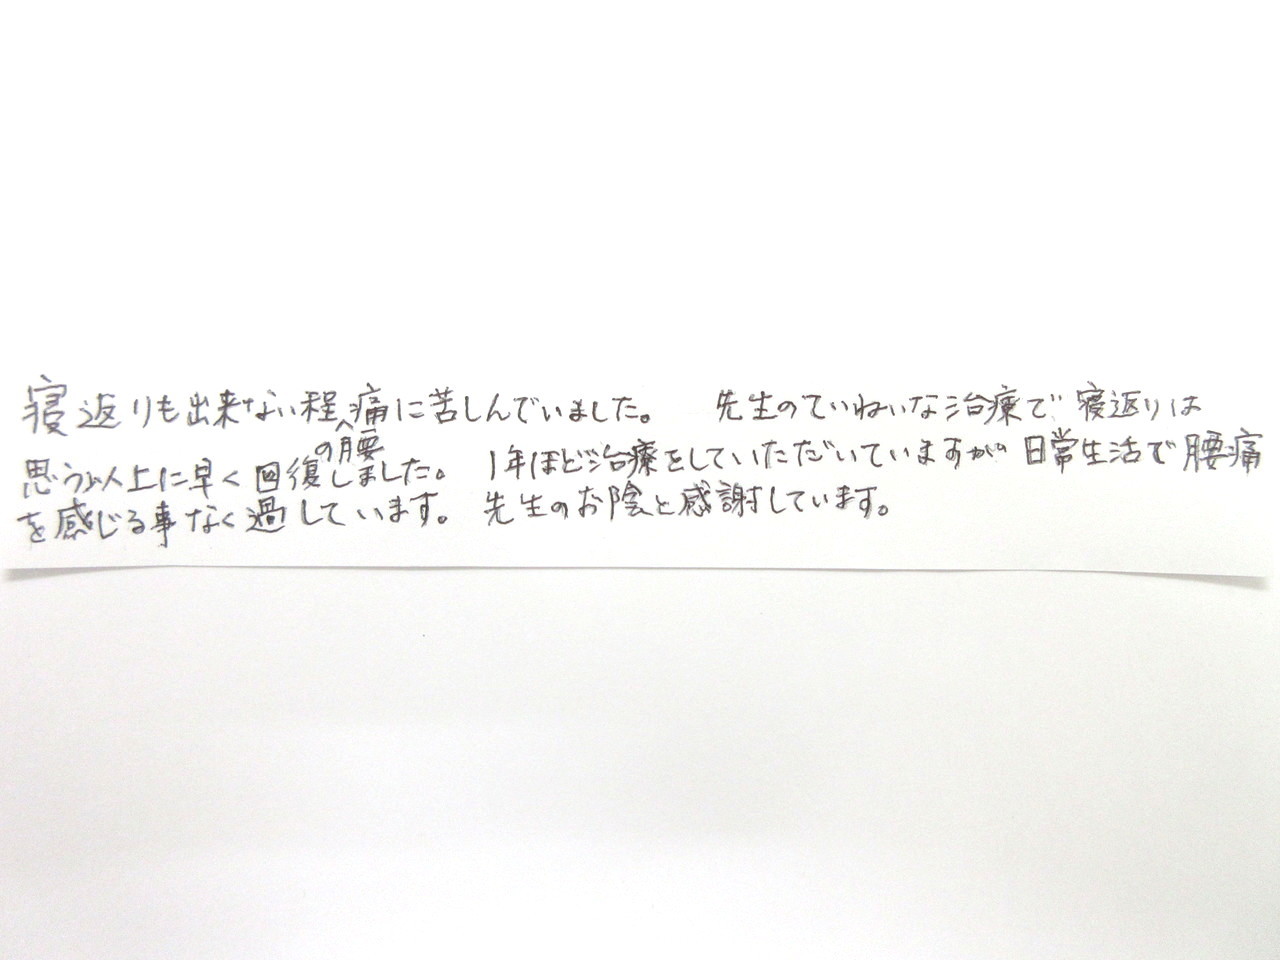 寝返りも出来ない程の腰痛に苦しんでいました。　先生のていねいな治療で寝返りは
思う以上に早く回復しました。　1年ほど治療をしていただいていますが日常生活で腰痛
を感じる事なく過しています。　先生のお陰と感謝しています。